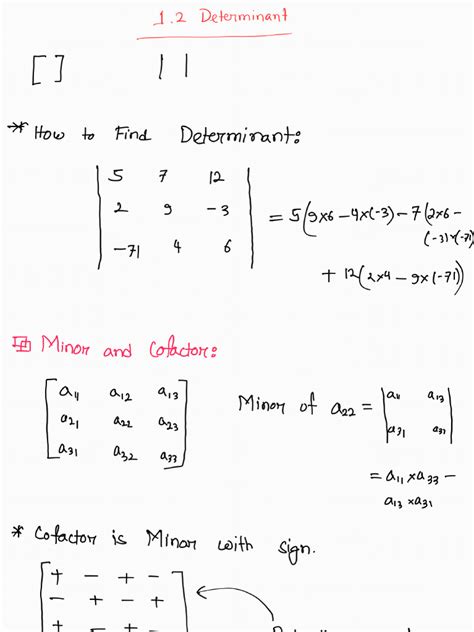 1.2 Determinant
[ ] | |
* How to Find Determinant:
| 5 7 12 |
| 2 9 -3 | = 5(9x6 - 4x(-3) - 7(2x6 -
(-3)x(-71)
| -71 4 6 |
+ 12(2x4 - 9x(-71))
Minor and Cofactor:
[ a11 a12 a13 ]
[ a21 a22 a23 ] Minor of a22 = | a11 a13 |
[ a31 a32 a33 ] | a31 a33 |
= a11 x a33 -
a13 x a31
* Cofactor is Minor with sign.
[ + - + - ]
- + - +
+ - +